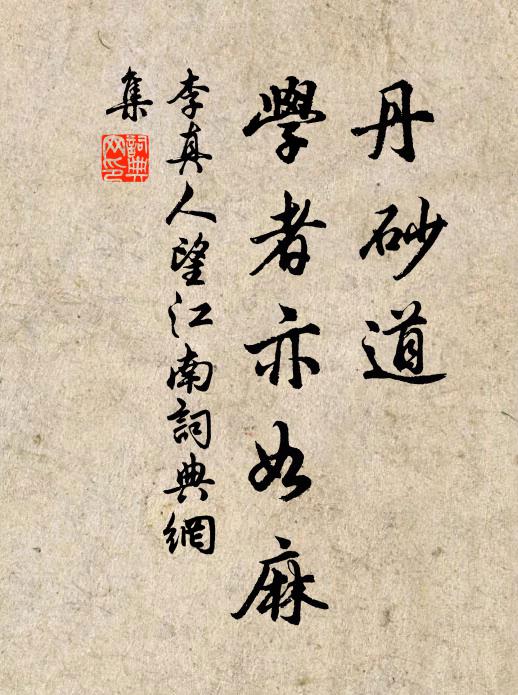 丹砂道
學者亦如麻
李真人望江南詞典網
集
詞典
网印